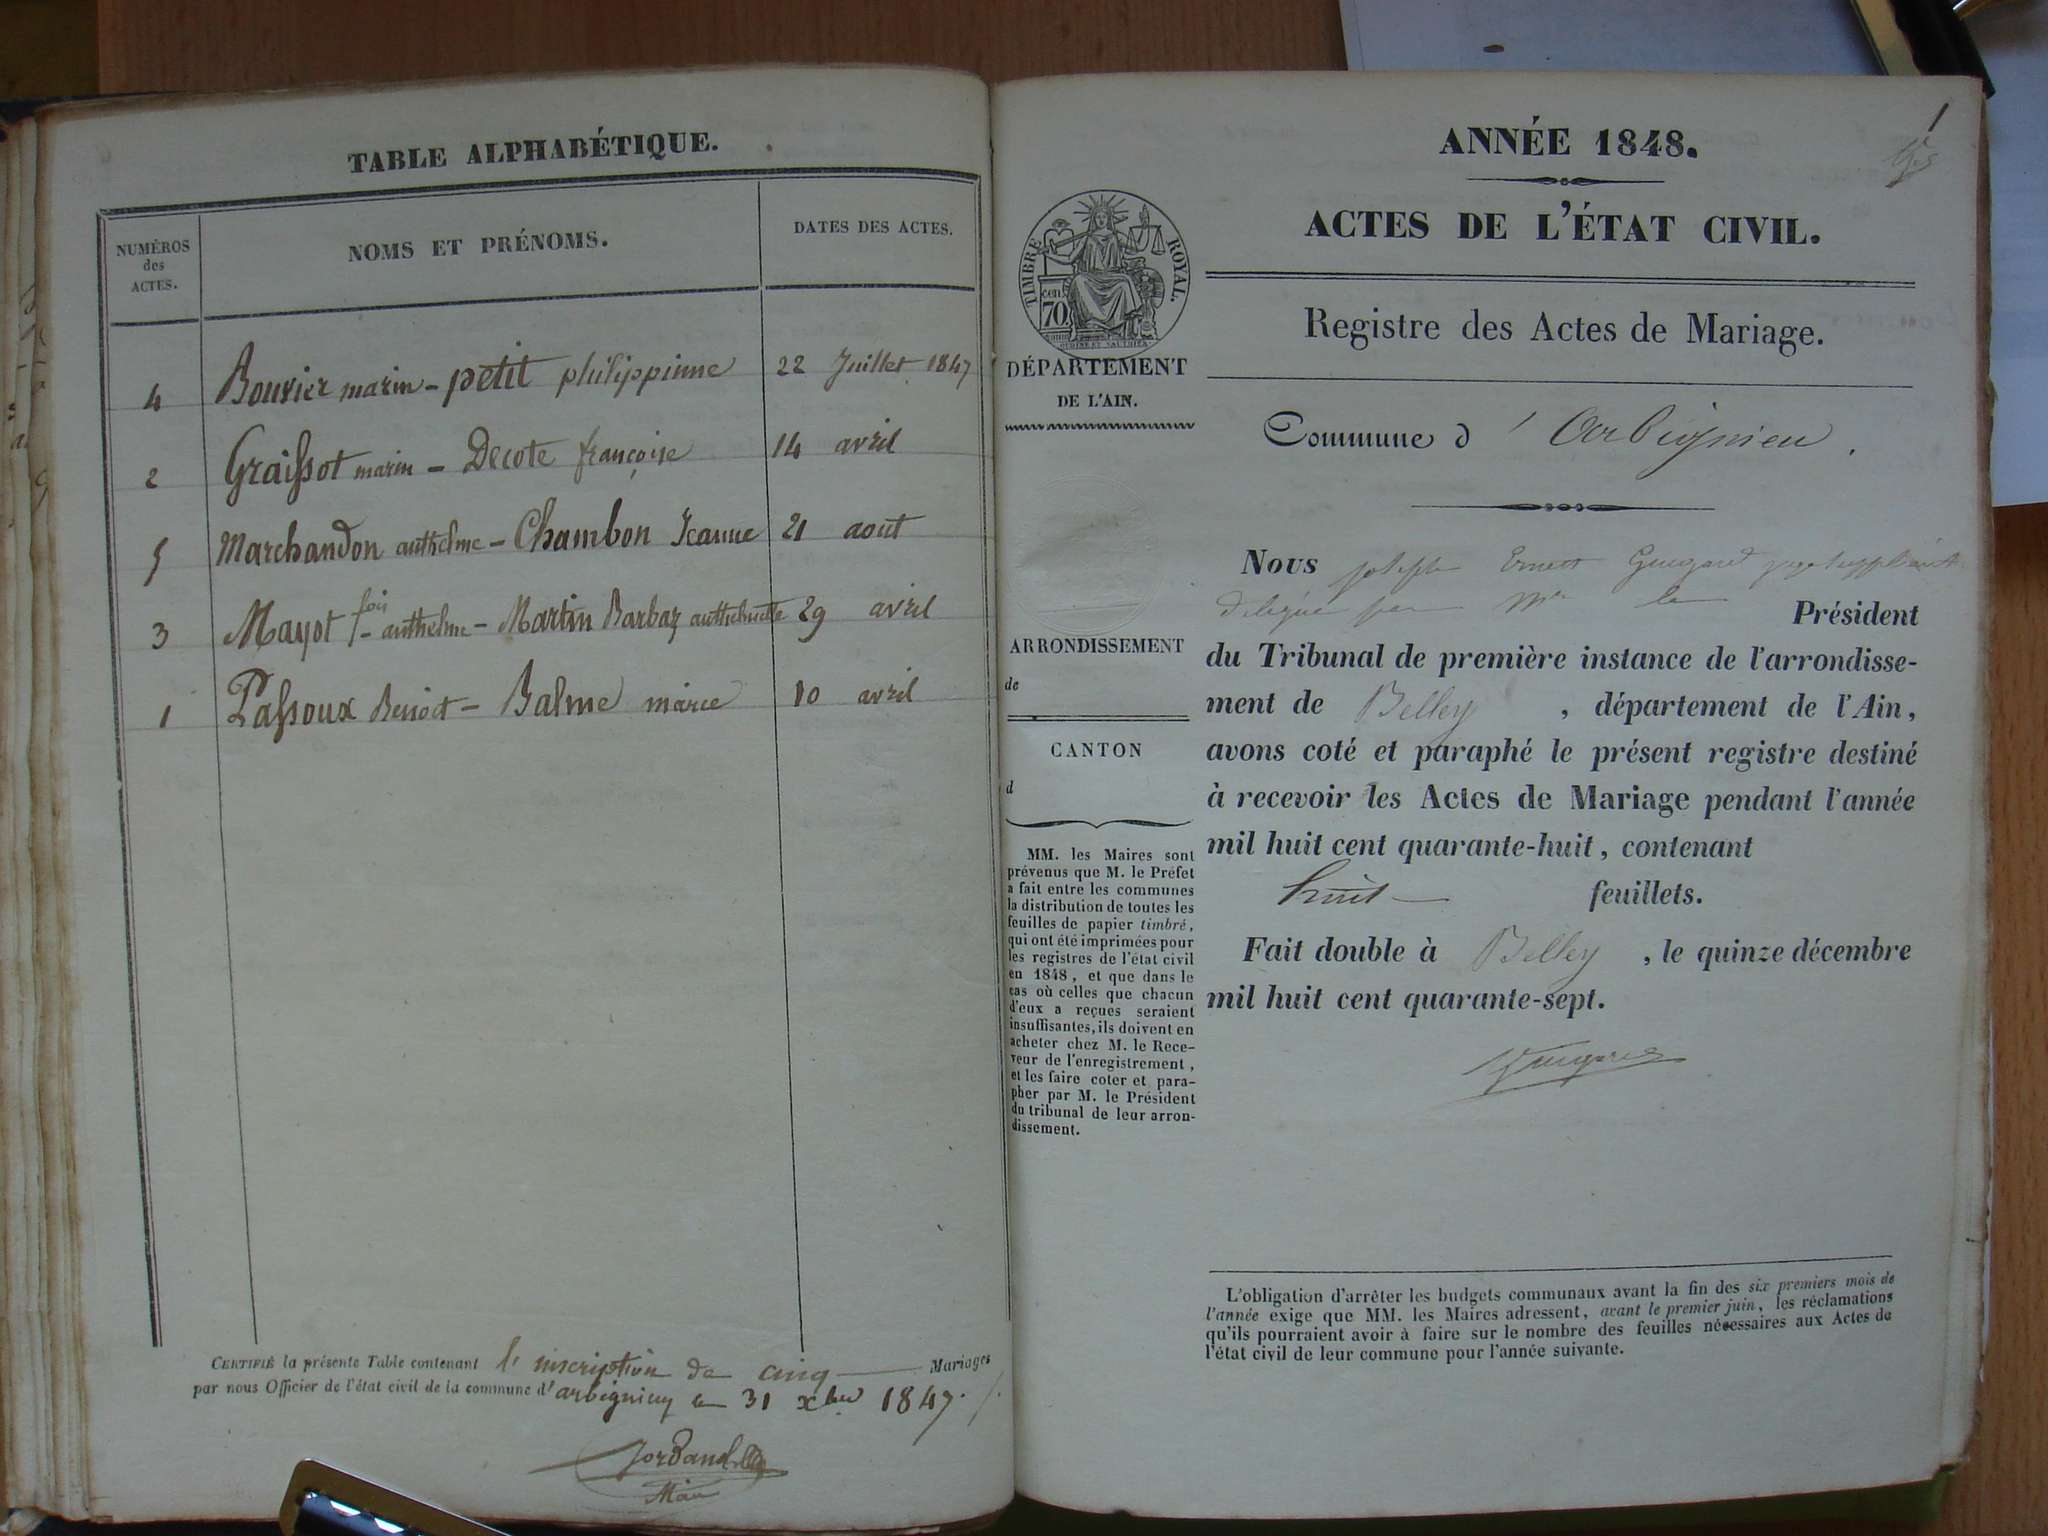 TABLE ALPHABÉTIQUE.
NUMÉROS
des
ACTES.
NOMS ET PRÉNOMS.
DATES DES ACTES.
4 Bouvier marin - petit philippinne 22 Juillet 1847
2 Graissot marin - Decote françoise 14 avril
5 Marchandon anthelme - Chambon Jeanne 21 aout
3 Mayot fois - anthelme - Martin Barbaz anthelmette 29 avril
1 Passoux Benoit - Balme marie 10 avril
CERTIFIÉ la présente Table contenant l'inscription de cinq Mariages
par nous Officier de l'état civil de la commune d'arbignieu le 31 xbre 1847.
Jordand
Maire
1
ANNÉE 1848.
ACTES DE L'ÉTAT CIVIL.
Registre des Actes de Mariage.
TIMBRE ROYAL.
cen.
70
DÉPARTEMENT
DE L'AIN.
ARRONDISSEMENT
de
CANTON
d
MM. les Maires sont
prévenus que M. le Préfet
a fait entre les communes
la distribution de toutes les
feuilles de papier timbré,
qui ont été imprimées pour
les registres de l'état civil
en 1848, et que dans le
cas où celles que chacun
d'eux a reçues seraient
insuffisantes, ils doivent en
acheter chez M. le Rece-
veur de l'enregistrement,
et les faire coter et para-
pher par M. le Président
du tribunal de leur arron-
dissement.
Commune d'Arbignieu.
Nous joseph Ernest Guigard juge suppléant
délégué par Mr le Président
du Tribunal de première instance de l'arrondisse-
ment de Belley, département de l'Ain,
avons coté et paraphé le présent registre destiné
à recevoir les Actes de Mariage pendant l'année
mil huit cent quarante-huit, contenant
huit feuillets.
Fait double à Belley, le quinze décembre
mil huit cent quarante-sept.
L'obligation d'arrêter les budgets communaux avant la fin des six premiers mois de
l'année exige que MM. les Maires adressent, avant le premier juin, les réclamations
qu'ils pourraient avoir à faire sur le nombre des feuilles nécessaires aux Actes de
l'état civil de leur commune pour l'année suivante.